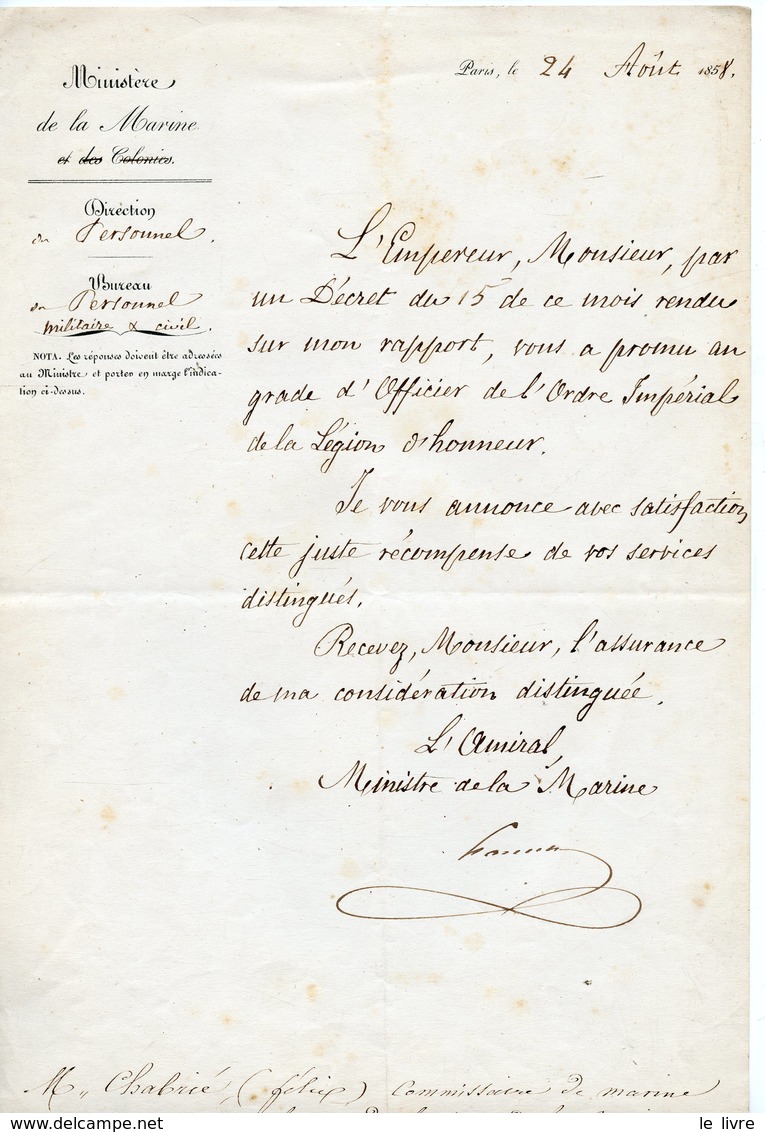 Ministère
de la Marine
et des Colonies.
Direction
du Personnel.
Bureau
du Personnel
militaire & civil.
NOTA. Les réponses doivent être adressées
au Ministre et porter en marge l'indica-
tion ci-dessus.
Paris, le 24 Août 1858.
L'Empereur, Monsieur, par
un Décret du 15 de ce mois rendu
sur mon rapport, vous a promu au
grade d'Officier de l'Ordre Impérial
de la Légion d'honneur.
Je vous annonce avec satisfaction
cette juste récompense de vos services
distingués.
Recevez, Monsieur, l'assurance
de ma considération distinguée.
L'Amiral,
Ministre de la Marine
M. Chabrié, (félix) Commissaire de marine
le livre